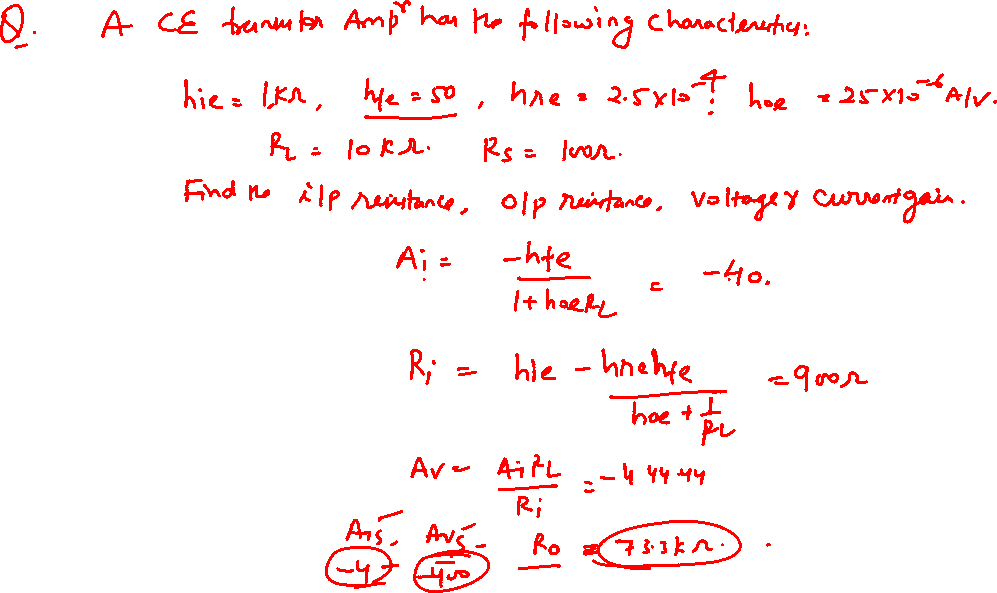 Q. A CE transistor Ampr has the following characteristics:
hie = 1KΩ, hfe = 50, hre = 2.5×10⁻⁴, hoe = 25×10⁻⁶ A/V.
RL = 10KΩ. Rs = 100Ω.
Find the i/p resistance, o/p resistance, voltage & current gain.
Ai = -hfe / 1+hoeRL = -40.
Ri = hie - hrehfe / hoe + 1/RL = 900Ω
Av = AiRL / Ri = -444.44
Ais, Avs Ro = 73.3KΩ.
-4 -400